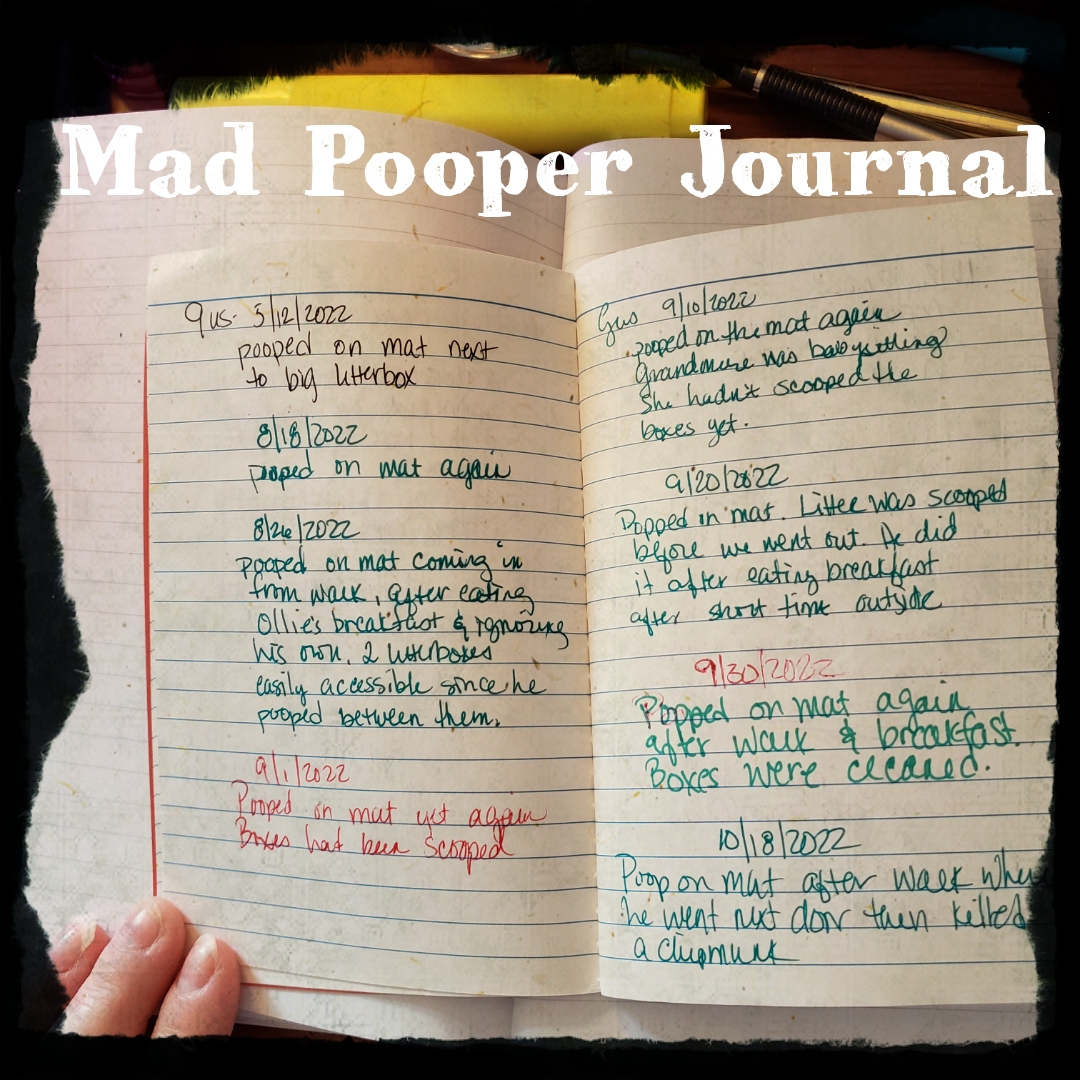 Mad Pooper Journal
Gus- 5/12/2022
pooped on mat next
to big litterbox
8/18/2022
pooped on mat again
8/26/2022
pooped on mat coming in
from walk, after eating
Ollie's breakfast & ignoring
his own. 2 litterboxes
easily accessible since he
pooped between them.
9/1/2022
Pooped on mat yet again
Boxes had been scooped
Gus 9/10/2022
pooped on the mat again
Grandmere was babysitting
She hadn't scooped the
boxes yet.
9/20/2022
Popped in mat. Litter was scooped
before we went out. He did
it after eating breakfast
after short time outside
9/30/2022
Popped on mat again
after walk & breakfast.
Boxes were cleaned.
10/18/2022
Poop on mat after walk when
he went next door then killed
a chipmunk